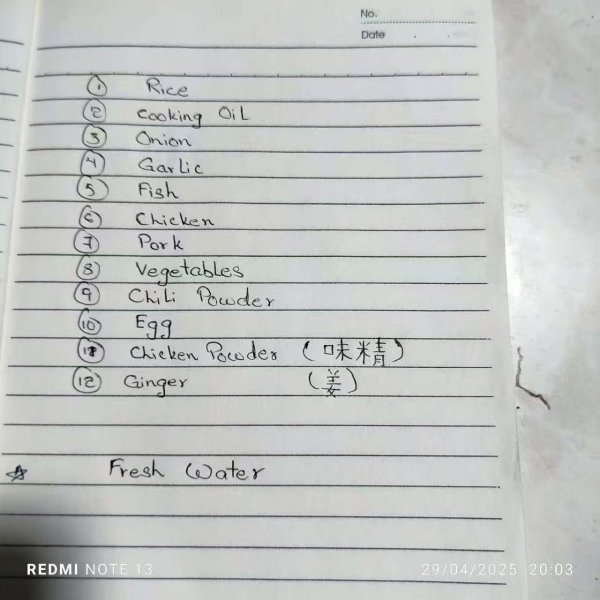 No.
Date
1 Rice
2 Cooking Oil
3 Onion
4 Garlic
5 Fish
6 Chicken
7 Pork
8 Vegetables
9 Chili Powder
10 Egg
11 Chicken Powder (味精)
12 Ginger (姜)
☆ Fresh Water
REDMI NOTE 13 29/04/2025 20:03